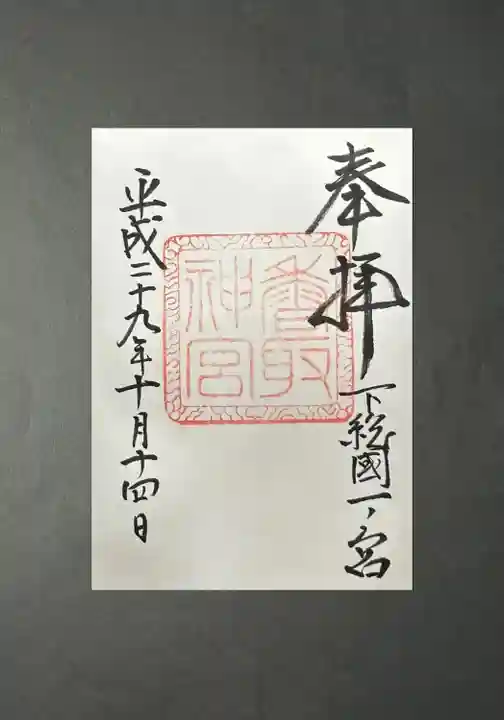 奉拝
下総國一ノ宮
香取
神宮
平成二十九年十月十四日